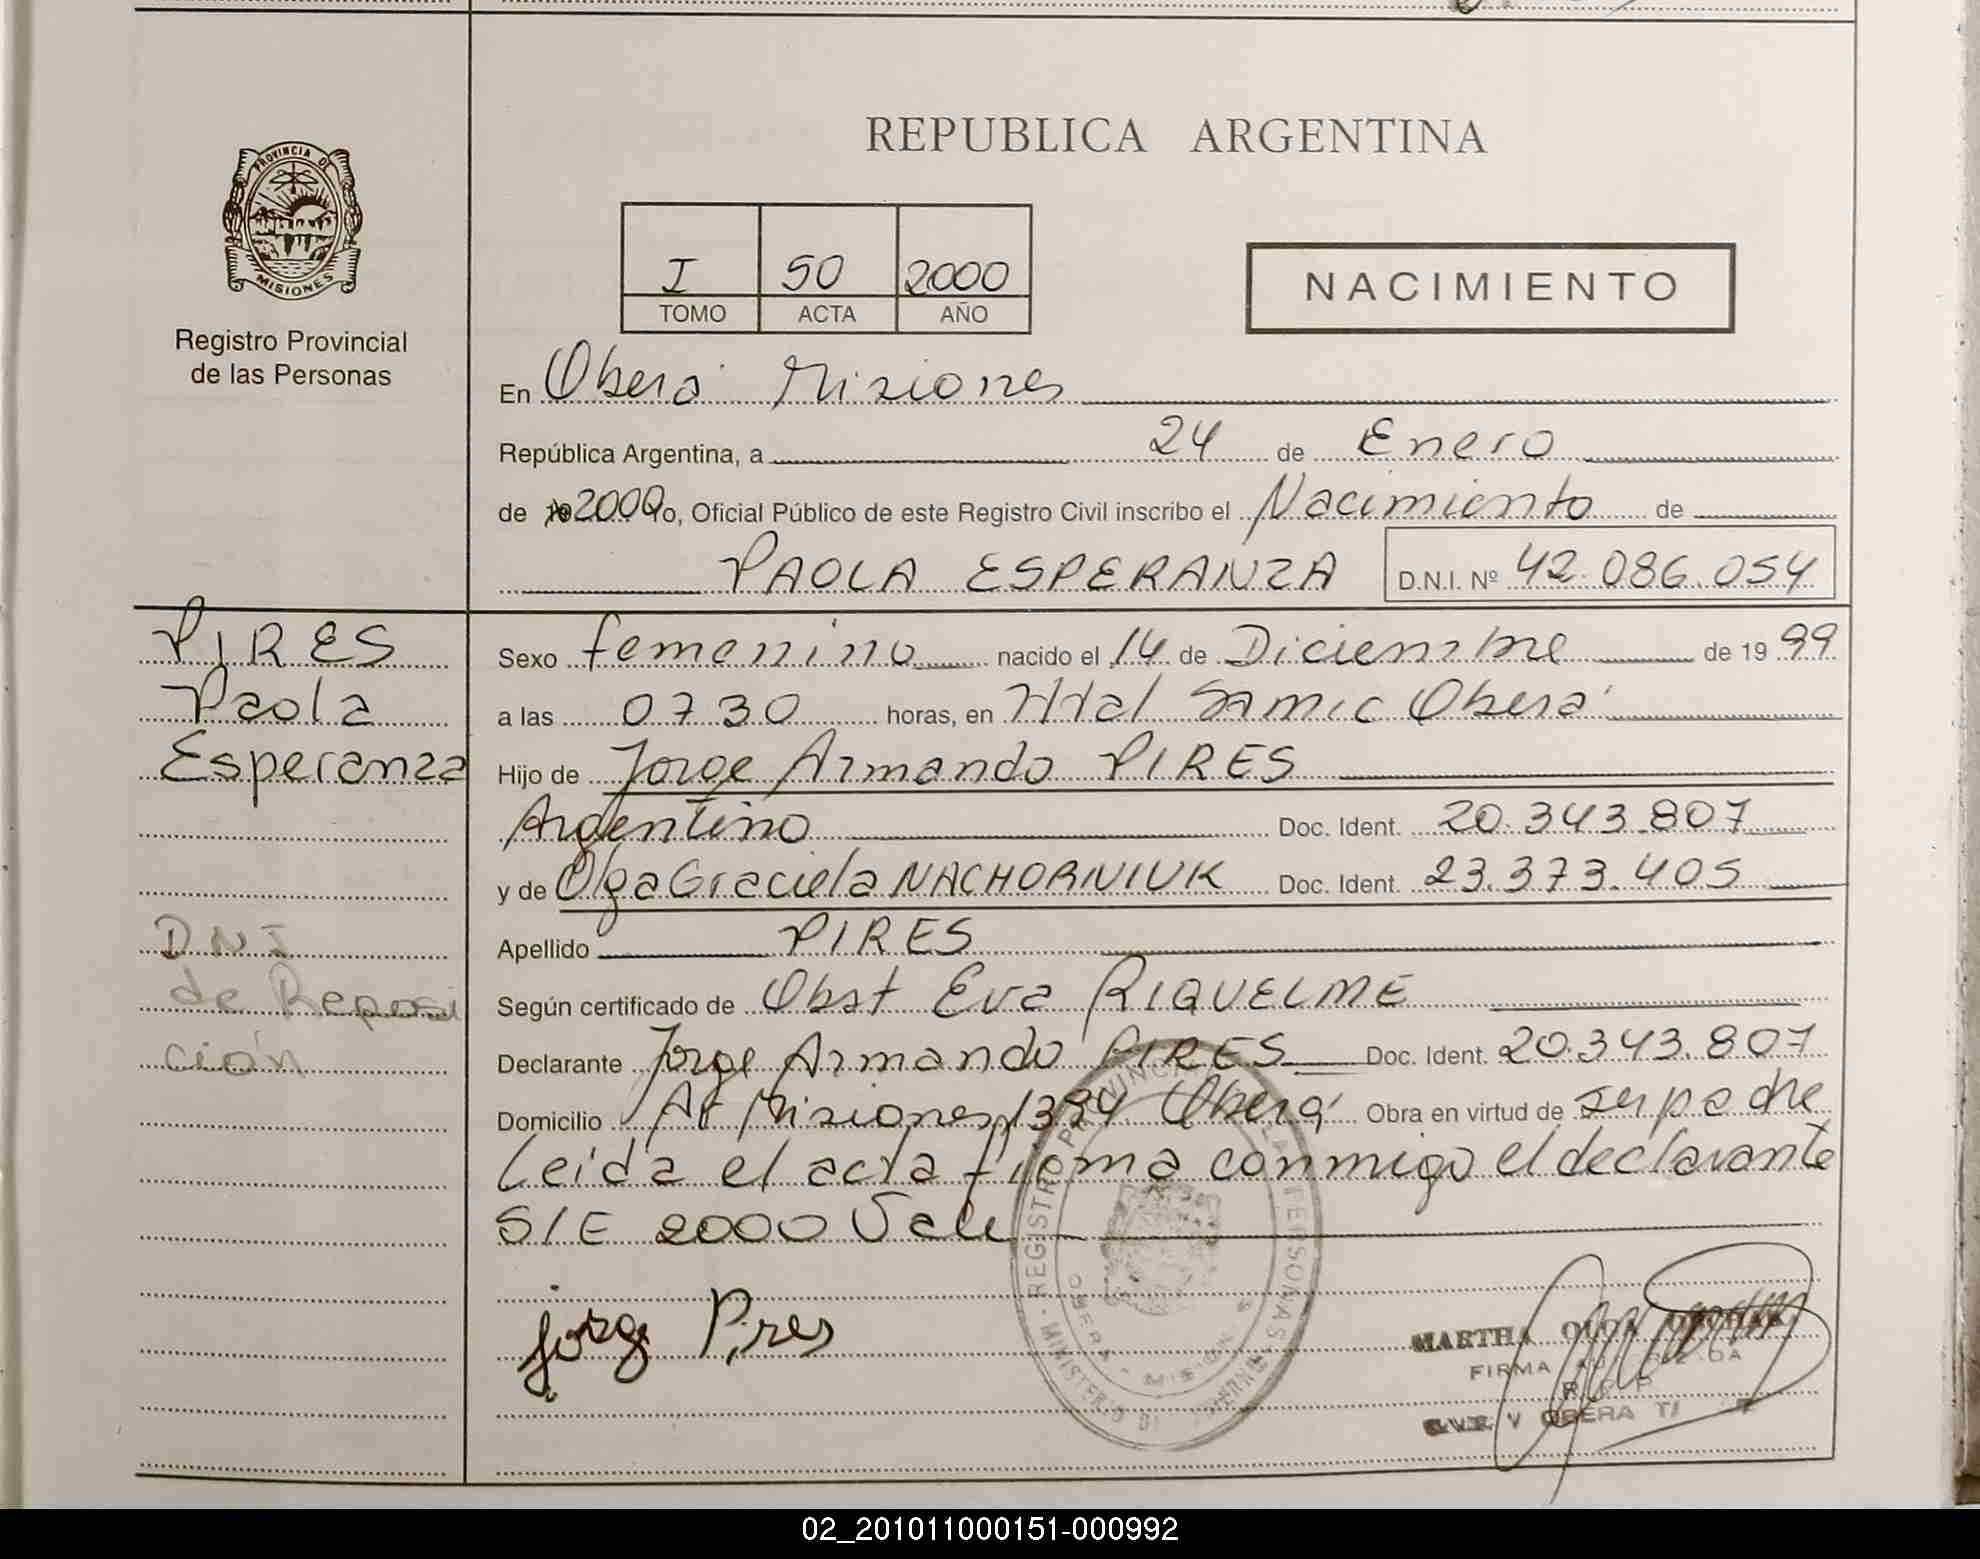 REPUBLICA ARGENTINA
PROVINCIA DE
MISIONES
Registro Provincial
de las Personas
I 50 2000
TOMO ACTA AÑO
NACIMIENTO
En Oberá Misiones
República Argentina, a 24 de Enero
de 19 2000 Yo, Oficial Público de este Registro Civil inscribo el Nacimiento de
PAOLA ESPERANZA D.N.I. Nº 42.086.054
PIRES
Paola
Esperanza
DNI
de Reposi
ción
Sexo femenino nacido el 14 de Diciembre de 19 99
a las 0730 horas, en Htal Samic Oberá
Hijo de Jorge Armando PIRES
Argentino Doc. Ident. 20.343.807
y de Olga Graciela NACHORNIUK Doc. Ident. 23.373.405
Apellido PIRES
Según certificado de Obst Eva RIQUELME
Declarante Jorge Armando PIRES Doc. Ident. 20.343.807
Domicilio Av Misiones 1394 Oberá Obra en virtud de ser padre
Leída el acta firma conmigo el declarante
S/E 2000 Vale
Jorge Pires
REGISTRO PROVINCIAL DE LAS PERSONAS
MINISTERIO DE
OBERA - MISIONES
MARTHA OLGA
FIRMA AUTORIZADA
R.P.P.
OBERA
02_201011000151-000992